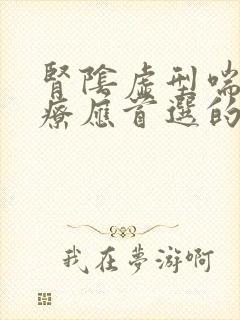 腎陰虛型喘
療應首選的
我在夢游啊